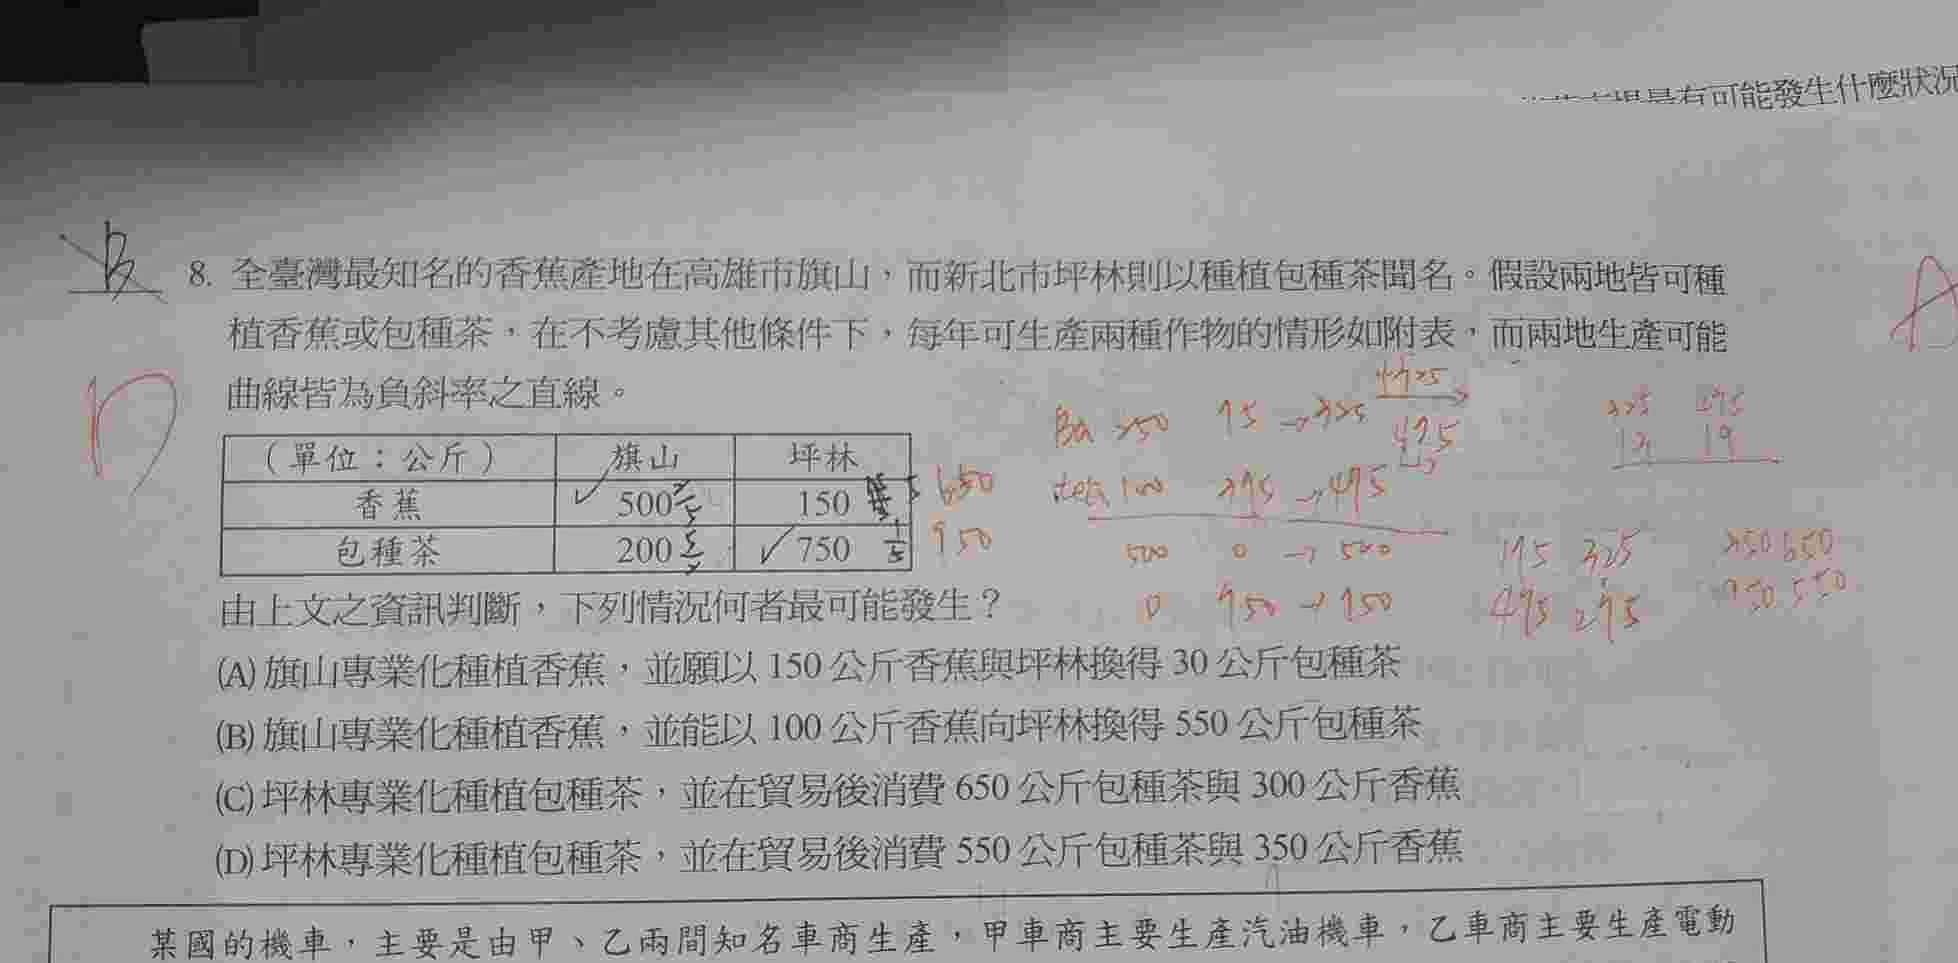 有可能發生什麼狀況
B
8. 全臺灣最知名的香蕉產地在高雄市旗山，而新北市坪林則以種植包種茶聞名。假設兩地皆可種
植香蕉或包種茶，在不考慮其他條件下，每年可生產兩種作物的情形如附表，而兩地生產可能
曲線皆為負斜率之直線。
D
A
（單位：公斤） 旗山 坪林
香蕉 500 150
包種茶 200 750
650
950
Ba 250 75 → 325
tea 100 → 475
475
500 0 → 500
0 950 → 950
325
19
325
475 275
250 650
550
由上文之資訊判斷，下列情況何者最可能發生？
(A) 旗山專業化種植香蕉，並願以 150 公斤香蕉與坪林換得 30 公斤包種茶
(B) 旗山專業化種植香蕉，並能以 100 公斤香蕉向坪林換得 550 公斤包種茶
(C) 坪林專業化種植包種茶，並在貿易後消費 650 公斤包種茶與 300 公斤香蕉
(D) 坪林專業化種植包種茶，並在貿易後消費 550 公斤包種茶與 350 公斤香蕉
某國的機車，主要是由甲、乙兩間知名車商生產，甲車商主要生產汽油機車，乙車商主要生產電動